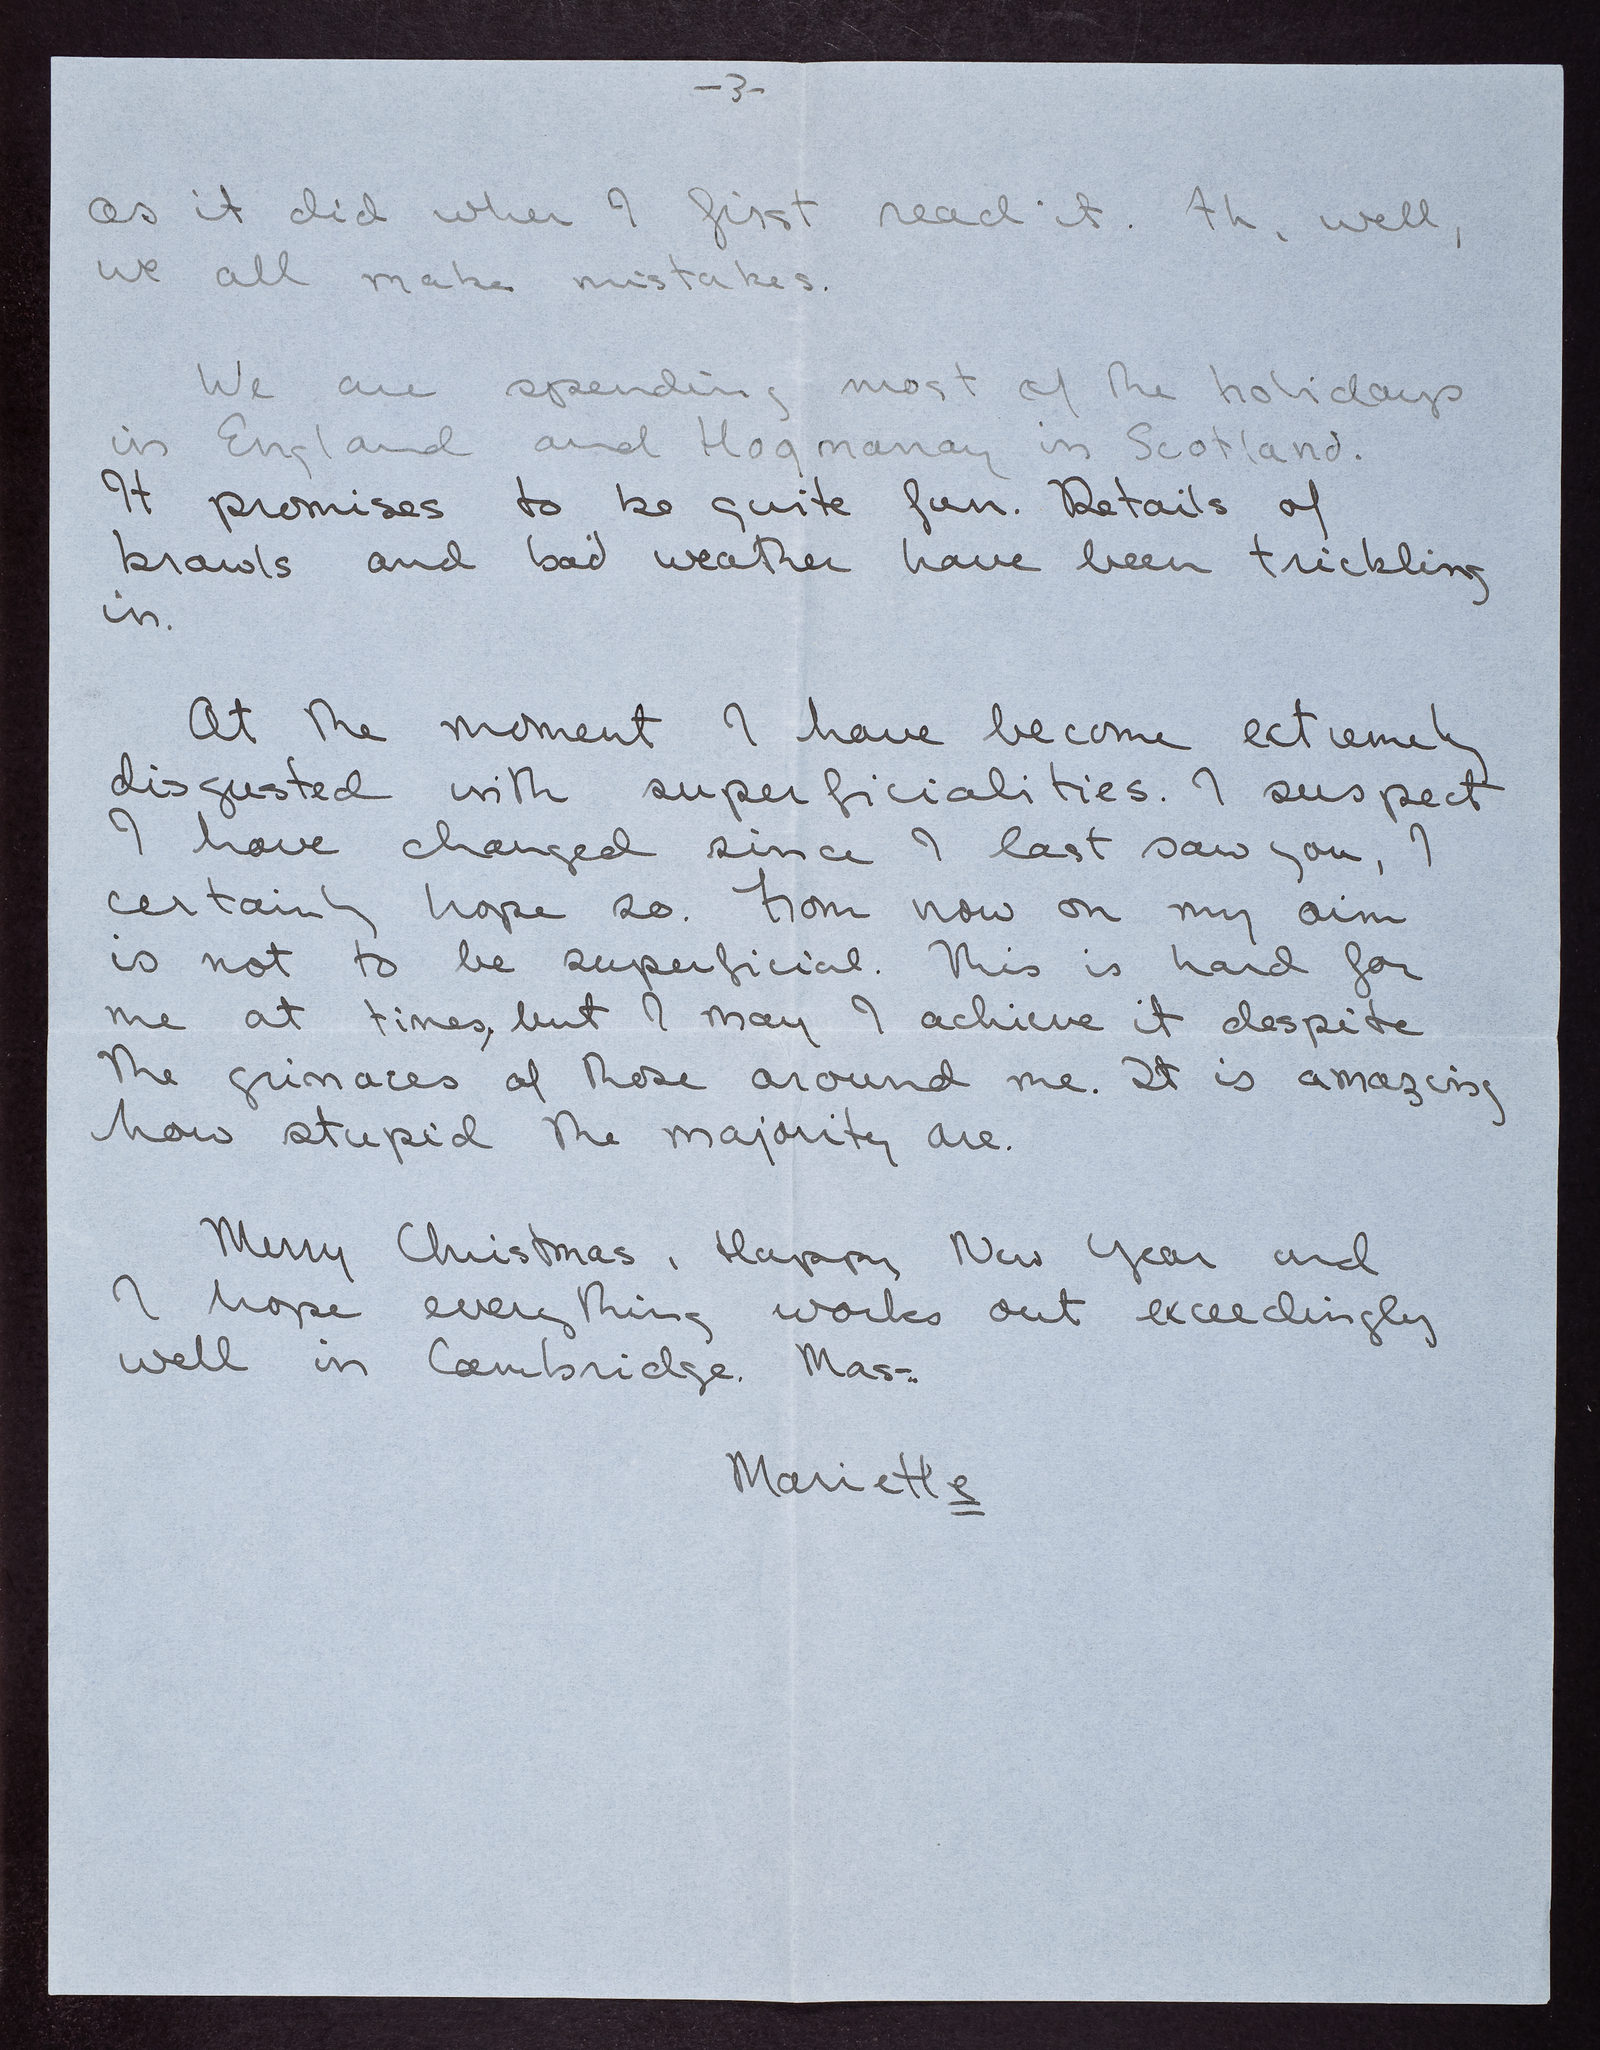 -3-
as it did when I first read it. Ah, well,
we all make mistakes.
We are spending most of the holidays
in England and Hogmanay in Scotland.
It promises to be quite fun. Details of
brawls and bad weather have been trickling
in.
At the moment I have become extremely
disgusted with superficialities. I suspect
I have changed since I last saw you, I
certainly hope so. From now on my aim
is not to be superficial. This is hard for
me at times, but I may I achieve it despite
the grimaces of those around me. It is amazing
how stupid the majority are.
Merry Christmas, Happy New Year and
I hope everything works out exceedingly
well in Cambridge. Mass.
Mariette